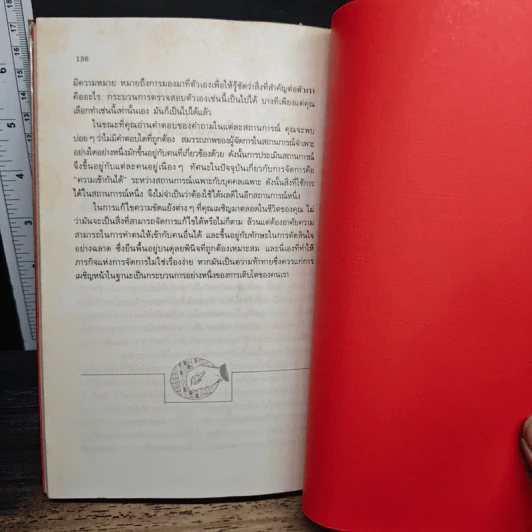 136
มีความหมาย หมายถึงการมองมาที่ตัวเองเพื่อให้รู้ชัดว่าสิ่งที่สำคัญต่อตัวเรา
คืออะไร กระบวนการตรวจสอบตัวเองเช่นนี้เป็นไปได้ บางทีเพียงแต่คุณ
เลือกทำเช่นนี้เท่านั้นเอง มันก็เป็นไปได้แล้ว
ในขณะที่คุณอ่านคำตอบของคำถามในแต่ละสถานการณ์ คุณจะพบ
บ่อยๆ ว่าไม่มีคำตอบใดที่ถูกต้อง สมรรถภาพของผู้จัดการในสถานการณ์จำเพาะ
อย่างใดอย่างหนึ่งมักขึ้นอยู่กับคนที่เกี่ยวข้องด้วย ดังนั้นการประเมินสถานการณ์
จึงขึ้นอยู่กับแต่ละคนอยู่เนืองๆ ทัศนะในปัจจุบันเกี่ยวกับการจัดการคือ
"ความเข้ากันได้" ระหว่างสถานการณ์เฉพาะกับบุคคลเฉพาะ ดังนั้นสิ่งที่ใช้การ
ได้ในสถานการณ์หนึ่ง จึงไม่จำเป็นว่าต้องใช้ได้ผลดีในอีกสถานการณ์หนึ่ง
ในการแก้ไขความขัดแย้งต่างๆ ที่คุณเผชิญมาตลอดในชีวิตของคุณ ไม่
ว่ามันจะเป็นสิ่งที่สามารถจัดการแก้ไขได้หรือไม่ก็ตาม ล้วนแต่ต้องอาศัยความ
สามารถในการทำตนให้เข้ากับคนอื่นได้ และขึ้นอยู่กับทักษะในการตัดสินใจ
อย่างฉลาด ซึ่งยืนพื้นอยู่บนดุลยพินิจที่ถูกต้องเหมาะสม และนี่เองที่ทำให้
ภารกิจแห่งการจัดการไม่ใช่เรื่องง่าย หากมันเป็นความท้าทายซึ่งควรแก่การ
เผชิญหน้าในฐานะเป็นกระบวนการอย่างหนึ่งของการเติบโตของคนเรา
5
6
7
8